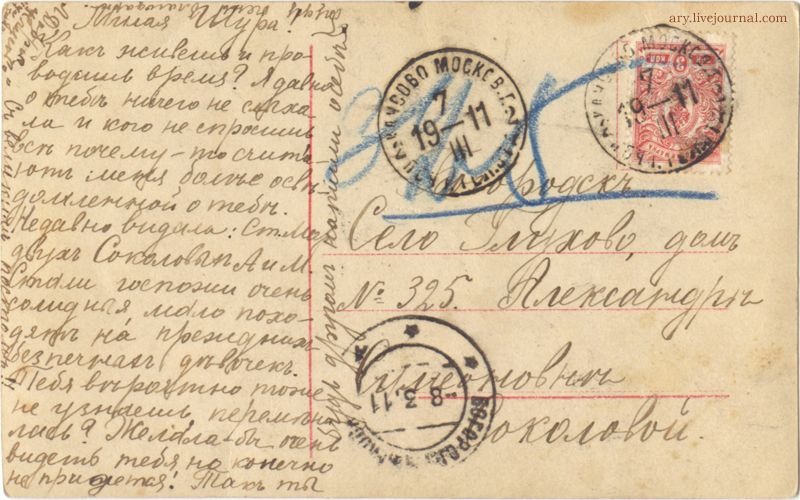 ary.livejournal.com
Милая Шура!
Какъ живешь и про-
водишь время? Я давно
о тебѣ ничего не слыха-
ла и кого не спросишь
всѣ почему-то счита-
ютъ меня болѣе освѣ-
домленной о тебѣ.
Недавно видала: Ст. Мар.
двухъ Соколовыхъ А и М.
Стали госпожи очень
солидныя мало похо-
дятъ на прежнихъ
безпечныхъ дѣвочекъ.
Тебя вѣроятно тоже
не узнаешь перемѣни-
лась? Желала бы очень
видеть тебя но конечно
не придется! Такъ ты
будь другомъ напиши о себѣ
КЛИСОВО МОСКОВ. Г.
7
19—11
III
7
19—11
III
городскъ
Село Глухово, домъ
№ 325. Александрѣ
Симеоновнѣ
Соколовой.
8
3.11
БОГОРОД